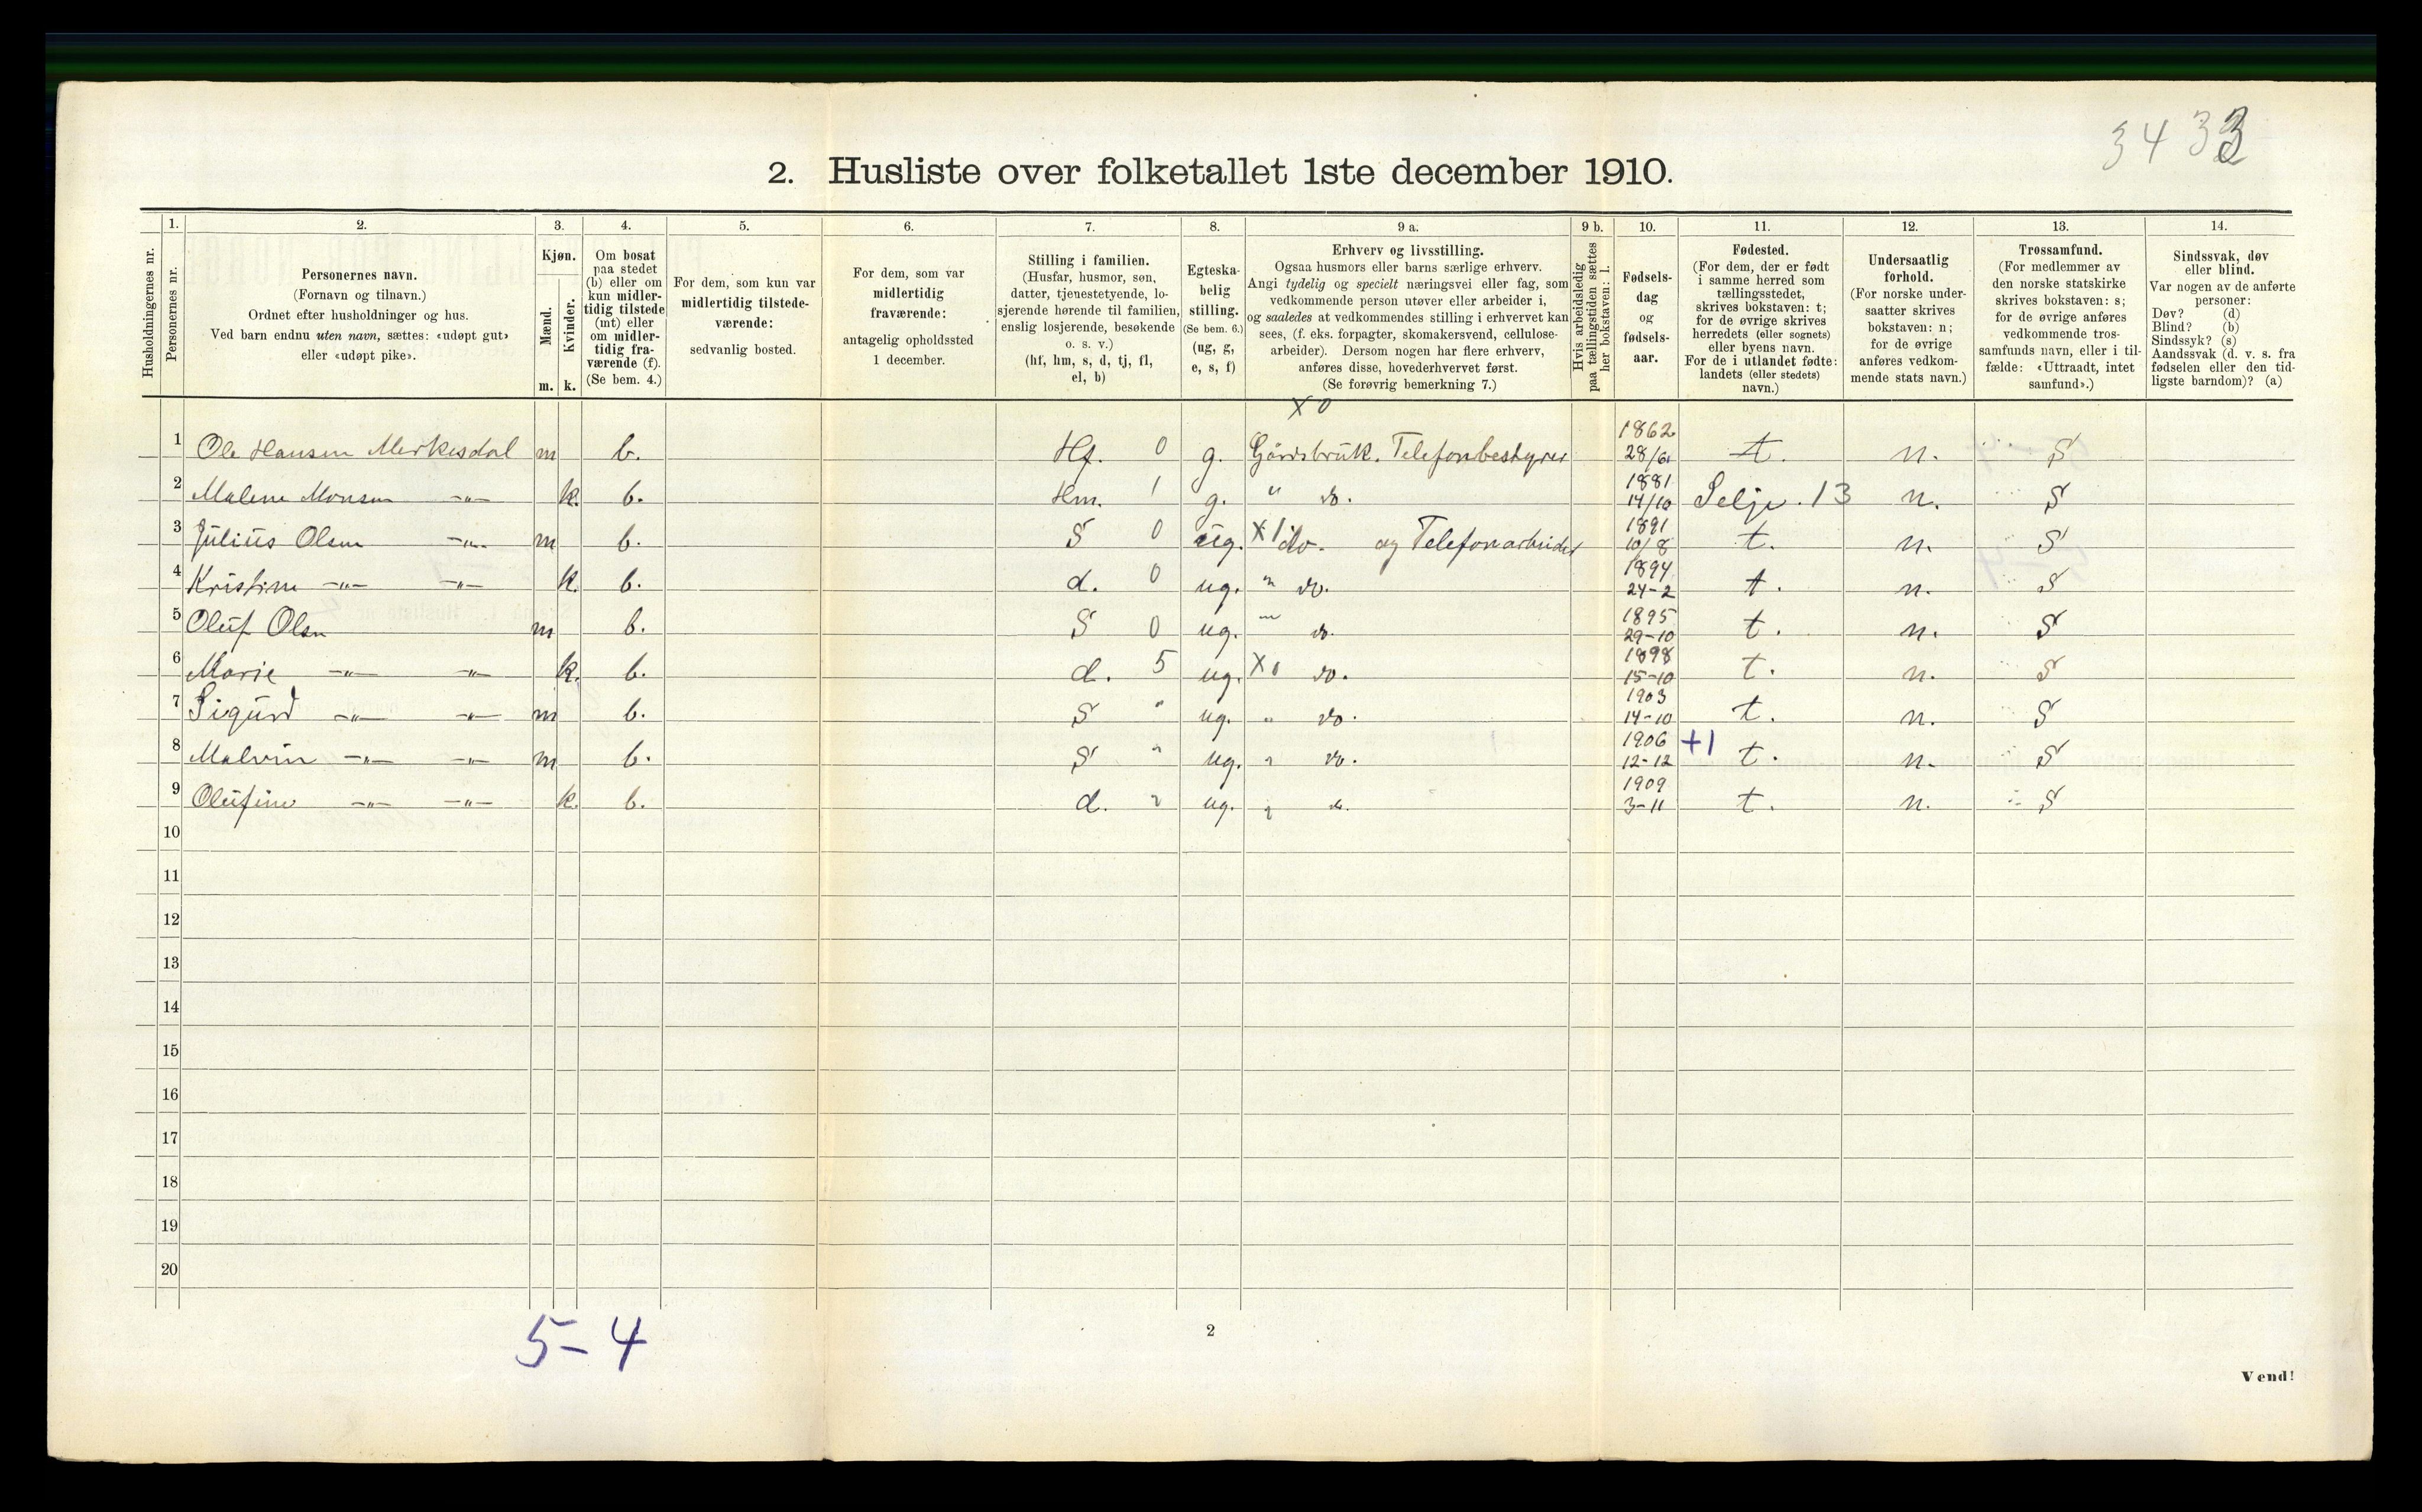 3433
2. Husliste over folketallet 1ste december 1910.
1. 2. 3. 4. 5. 6. 7. 8. 9 a. 9 b. 10. 11. 12. 13. 14.
Husholdningernes nr.
Personernes nr.
Personernes navn.
(Fornavn og tilnavn.)
Ordnet efter husholdninger og hus.
Ved barn endnu uten navn, sættes: «udøpt gut»
eller «udøpt pike».
Kjøn.
Mænd.
Kvinder.
m. k.
Om bosat
paa stedet
(b) eller om
kun midler-
tidig tilstede
(mt) eller
om midler-
tidig fra-
værende (f).
(Se bem. 4.)
For dem, som kun var
midlertidig tilstede-
værende:
sedvanlig bosted.
For dem, som var
midlertidig
fraværende:
antagelig opholdssted
1 december.
Stilling i familien.
(Husfar, husmor, søn,
datter, tjenestetyende, lo-
sjerende hørende til familien,
enslig losjerende, besøkende
o. s. v.)
(hf, hm, s, d, tj, fl,
el, b)
Egteska-
belig
stilling.
(Se bem. 6.)
(ug, g,
e, s, f)
Erhverv og livsstilling.
Ogsaa husmors eller barns særlige erhverv.
Angi tydelig og specielt næringsvei eller fag, som
vedkommende person utøver eller arbeider i,
og saaledes at vedkommendes stilling i erhvervet kan
sees, (f. eks. forpagter, skomakersvend, cellulose-
arbeider). Dersom nogen har flere erhverv,
anføres disse, hovederhvervet først.
(Se forøvrig bemerkning 7.)
Hvis arbeidsledig
paa tællingstiden sættes
her bokstaven: l.
Fødsels-
dag
og
fødsels-
aar.
Fødested.
(For dem, der er født
i samme herred som
tællingsstedet,
skrives bokstaven: t;
for de øvrige skrives
herredets (eller sognets)
eller byens navn.
For de i utlandet fødte:
landets (eller stedets)
navn.)
Undersaatlig
forhold.
(For norske under-
saatter skrives
bokstaven: n;
for de øvrige
anføres vedkom-
mende stats navn.)
Trossamfund.
(For medlemmer av
den norske statskirke
skrives bokstaven: s;
for de øvrige anføres
vedkommende tros-
samfunds navn, eller i til-
fælde: «Uttraadt, intet
samfund».)
Sindssvak, døv
eller blind.
Var nogen av de anførte
personer:
Døv? (d)
Blind? (b)
Sindssyk? (s)
Aandssvak (d. v. s. fra
fødselen eller den tid-
ligste barndom)? (a)
X 0
1 Ole Hansen Merkesdal m b. Hf. 0 g. Gårdsbruk. Telefonbestyrer 1862 28/6 t. n. S
2 Malene Monsen -„- k. b. Hm. 1 g. " do. 1881 14/10 Selje. 13 n. S
3 Julius Olsen -„- m b. S 0 ug. X 1 do. og Telefonarbeider 1891 10/8 t. n. S
4 Kristine -„- -„- k. b. d. 0 ug. " do. 1894 24-2 t. n. S
5 Oluf Olsen m b. S 0 ug. " do. 1895 29-10 t. n. S
6 Marie -„- -„- k. b. d. 5 ug. X 0 do. 1898 15-10 t. n. S
7 Sigurd -„- -„- m b. S " ug. " do. 1903 14-10 t. n. S
8 Malvin -„- -„- m b. S " ug. " do. 1906 12-12 +1 t. n. S
9 Olufine -„- -„- k. b. d. " ug. " do. 1909 3-11 t. n. S
10
11
12
13
14
15
16
17
18
19
20
5-4
2
Vend!